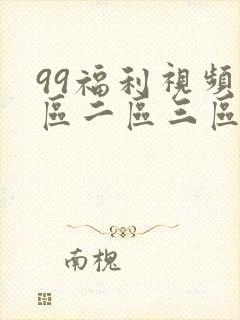 99福利視頻
區二區三區
南槐